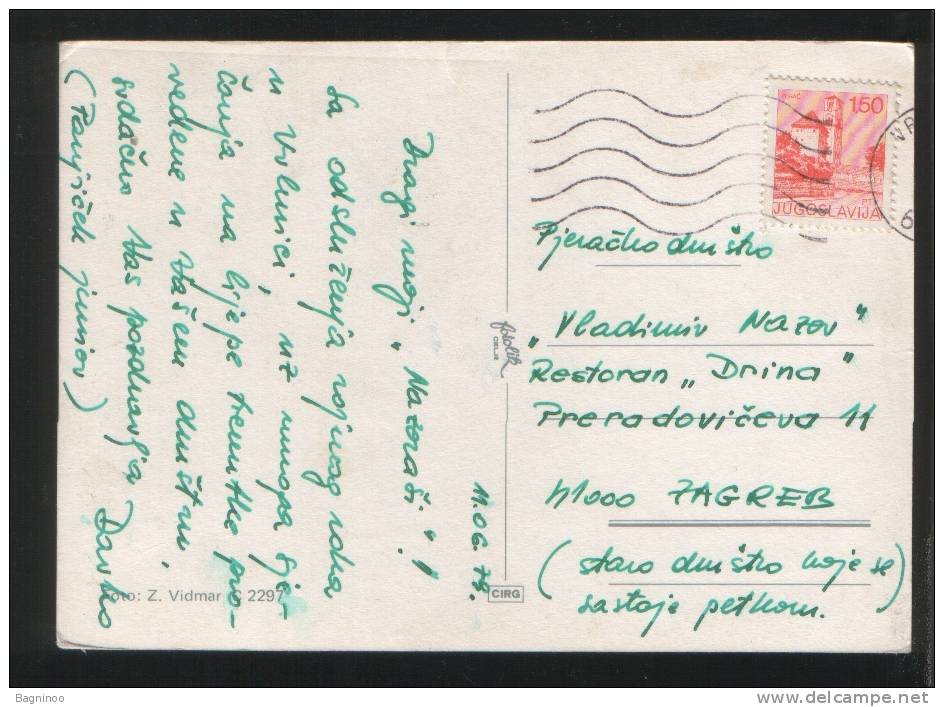 Dragi moji „Nazoraši"!
Sa odsluženja vojnog roka
u Vrhnici, uz mnogo sje-
ćanja na lijepe trenutke pro-
vedene u Vašem društvu,
srdačno Vas pozdravlja Darko
(Panjiček junior)
11.06.79.
fotolik
CELJE
CIRG
Foto: Z. Vidmar C 2297
BIHAĆ
1,50
PTT
JUGOSLAVIJA
Pjevačko društvo
„Vladimir Nazor"
Restoran „Drina"
Preradovićeva 11
41000 ZAGREB
(staro društvo koje se
sastaje petkom.)
Bagninoo
www.delcampe.net